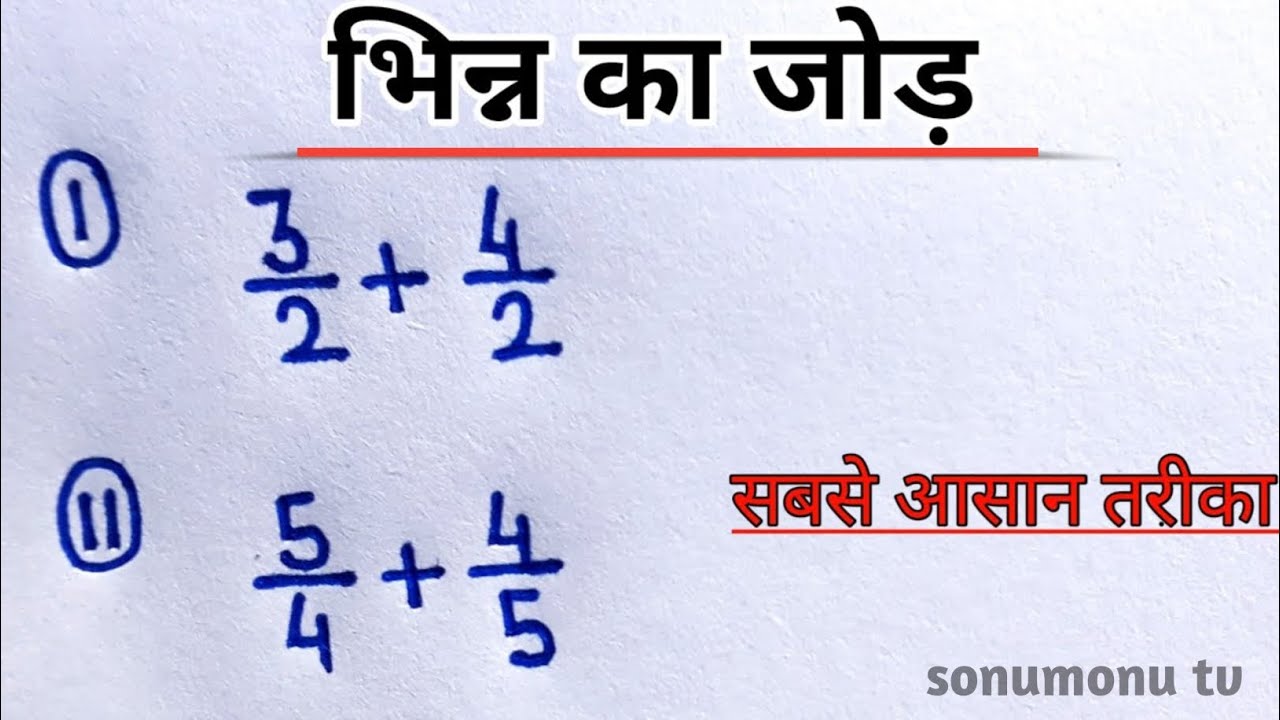 भिन्न का जोड़
I 3/2 + 4/2
II 5/4 + 4/5
सबसे आसान तरीका
sonumonu tv